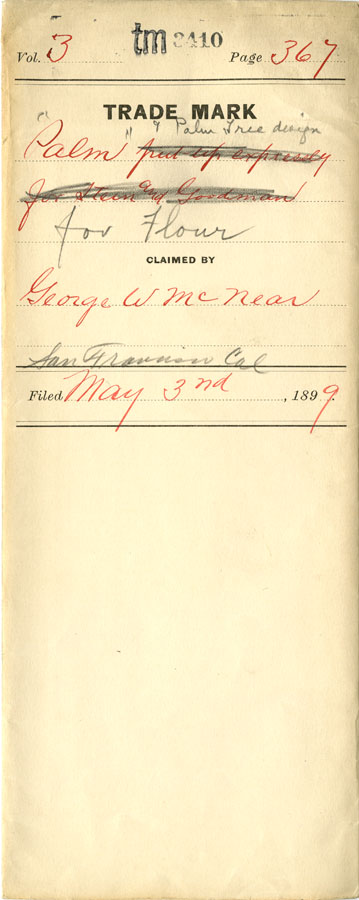 tm 3410
Vol. 3 Page 367
TRADE MARK
" " & Palm Tree design
Palm put up expressly
for Stein and Goodman
for Flour
CLAIMED BY
George W McNear
San Francisco Cal
Filed May 3nd, 1899.